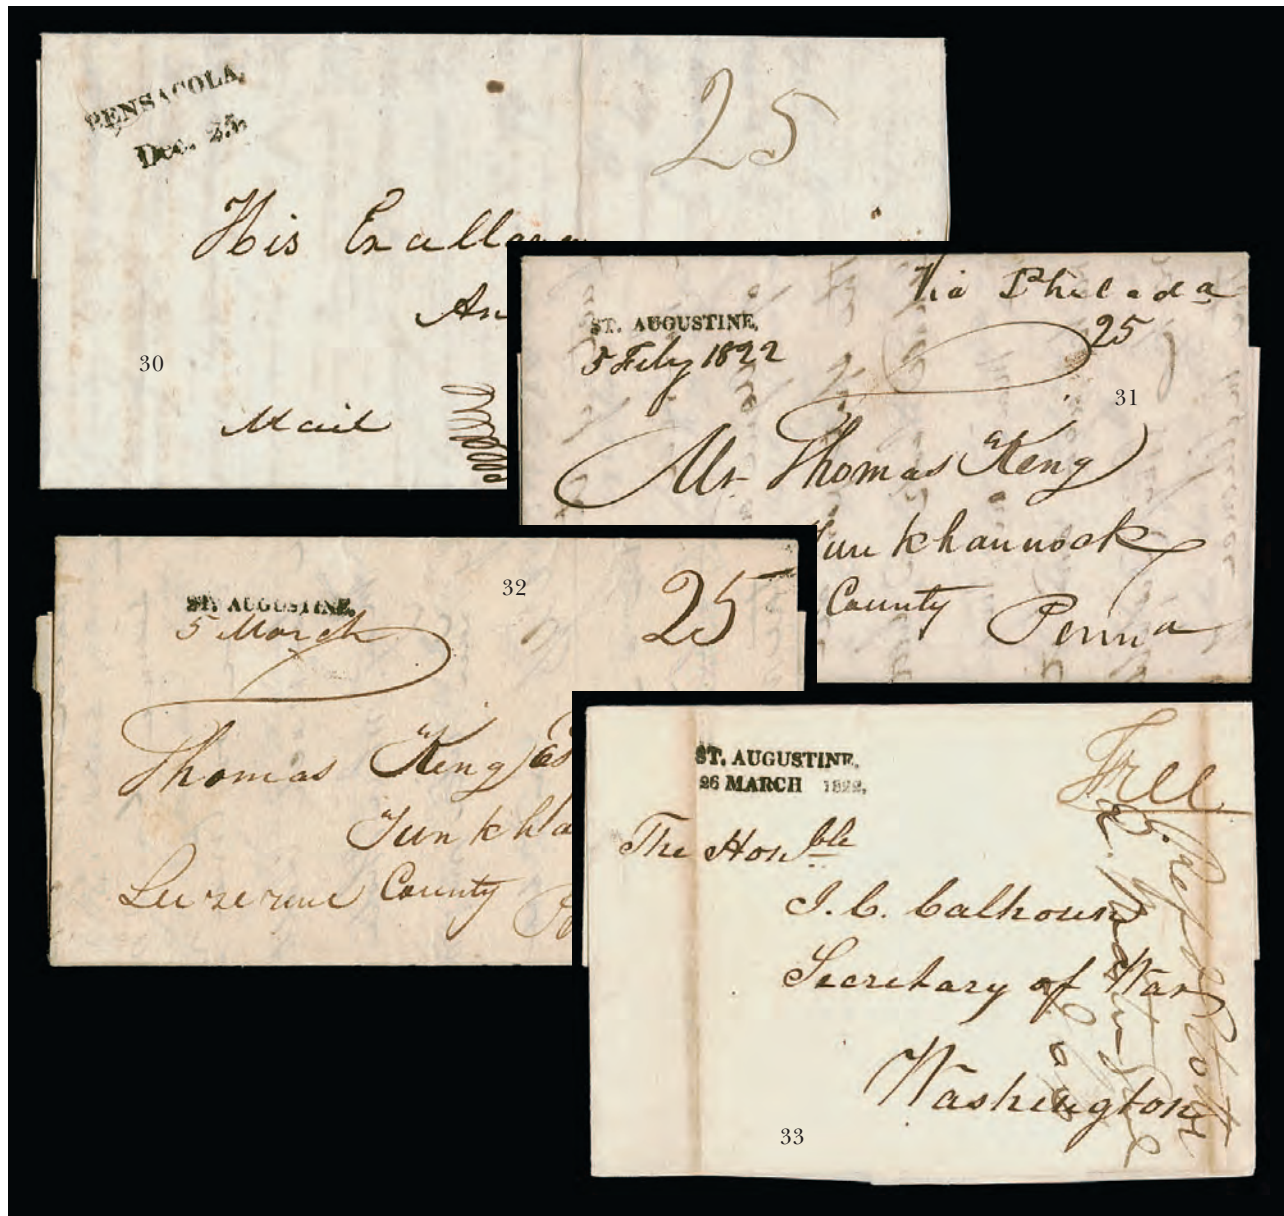 PENSACOLA,
Dec. 25,
25
His Excellency
An
Mail
30
Via Philada
ST. AUGUSTINE,
5 Feby 1822
25
31
Mr Thomas Keng
Tunkhannock
County
Penna
32
ST. AUGUSTINE,
5 March
25
Thomas Keng Es
Tunkha
Luzerne County
33
ST. AUGUSTINE,
26 MARCH 1822,
Free
The Honble
J. C. Calhoun
Secretary of War
Washington